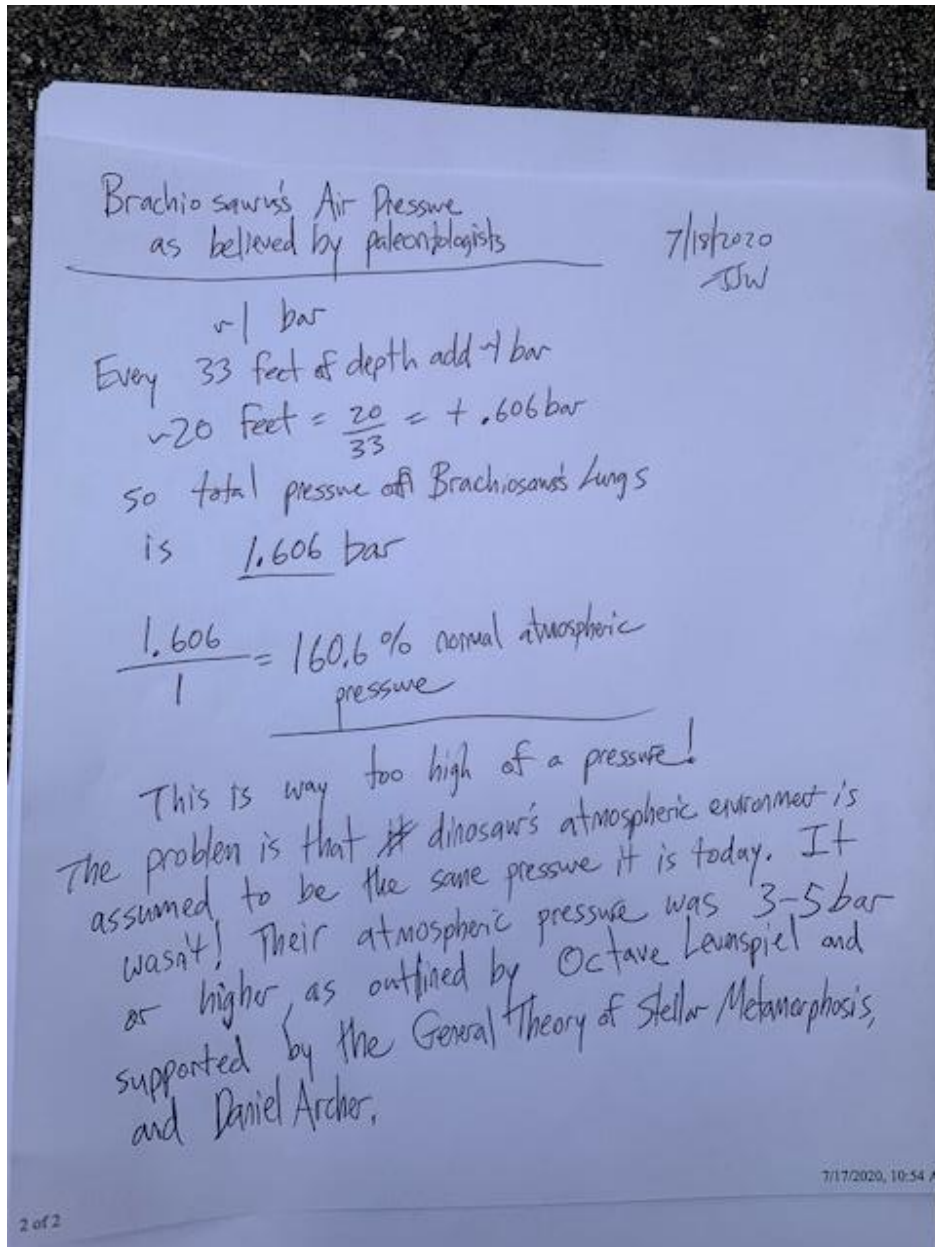 Brachiosaurus's Air Pressure
as believed by paleontologists
7/18/2020
JJW
~1 bar
Every 33 feet of depth add ~1 bar
~20 feet = 20/33 = + .606 bar
so total pressure on Brachiosaurus's Lungs
is 1.606 bar
1.606/1 = 160.6% normal atmospheric
pressure
This is way too high of a pressure!
The problem is that dinosaur's atmospheric environment is
assumed to be the same pressure it is today. It
wasn't! Their atmospheric pressure was 3-5 bar
or higher, as outlined by Octave Levenspiel and
supported by the General Theory of Stellar Metamorphosis,
and Daniel Archer.
7/17/2020, 10:54
2 of 2